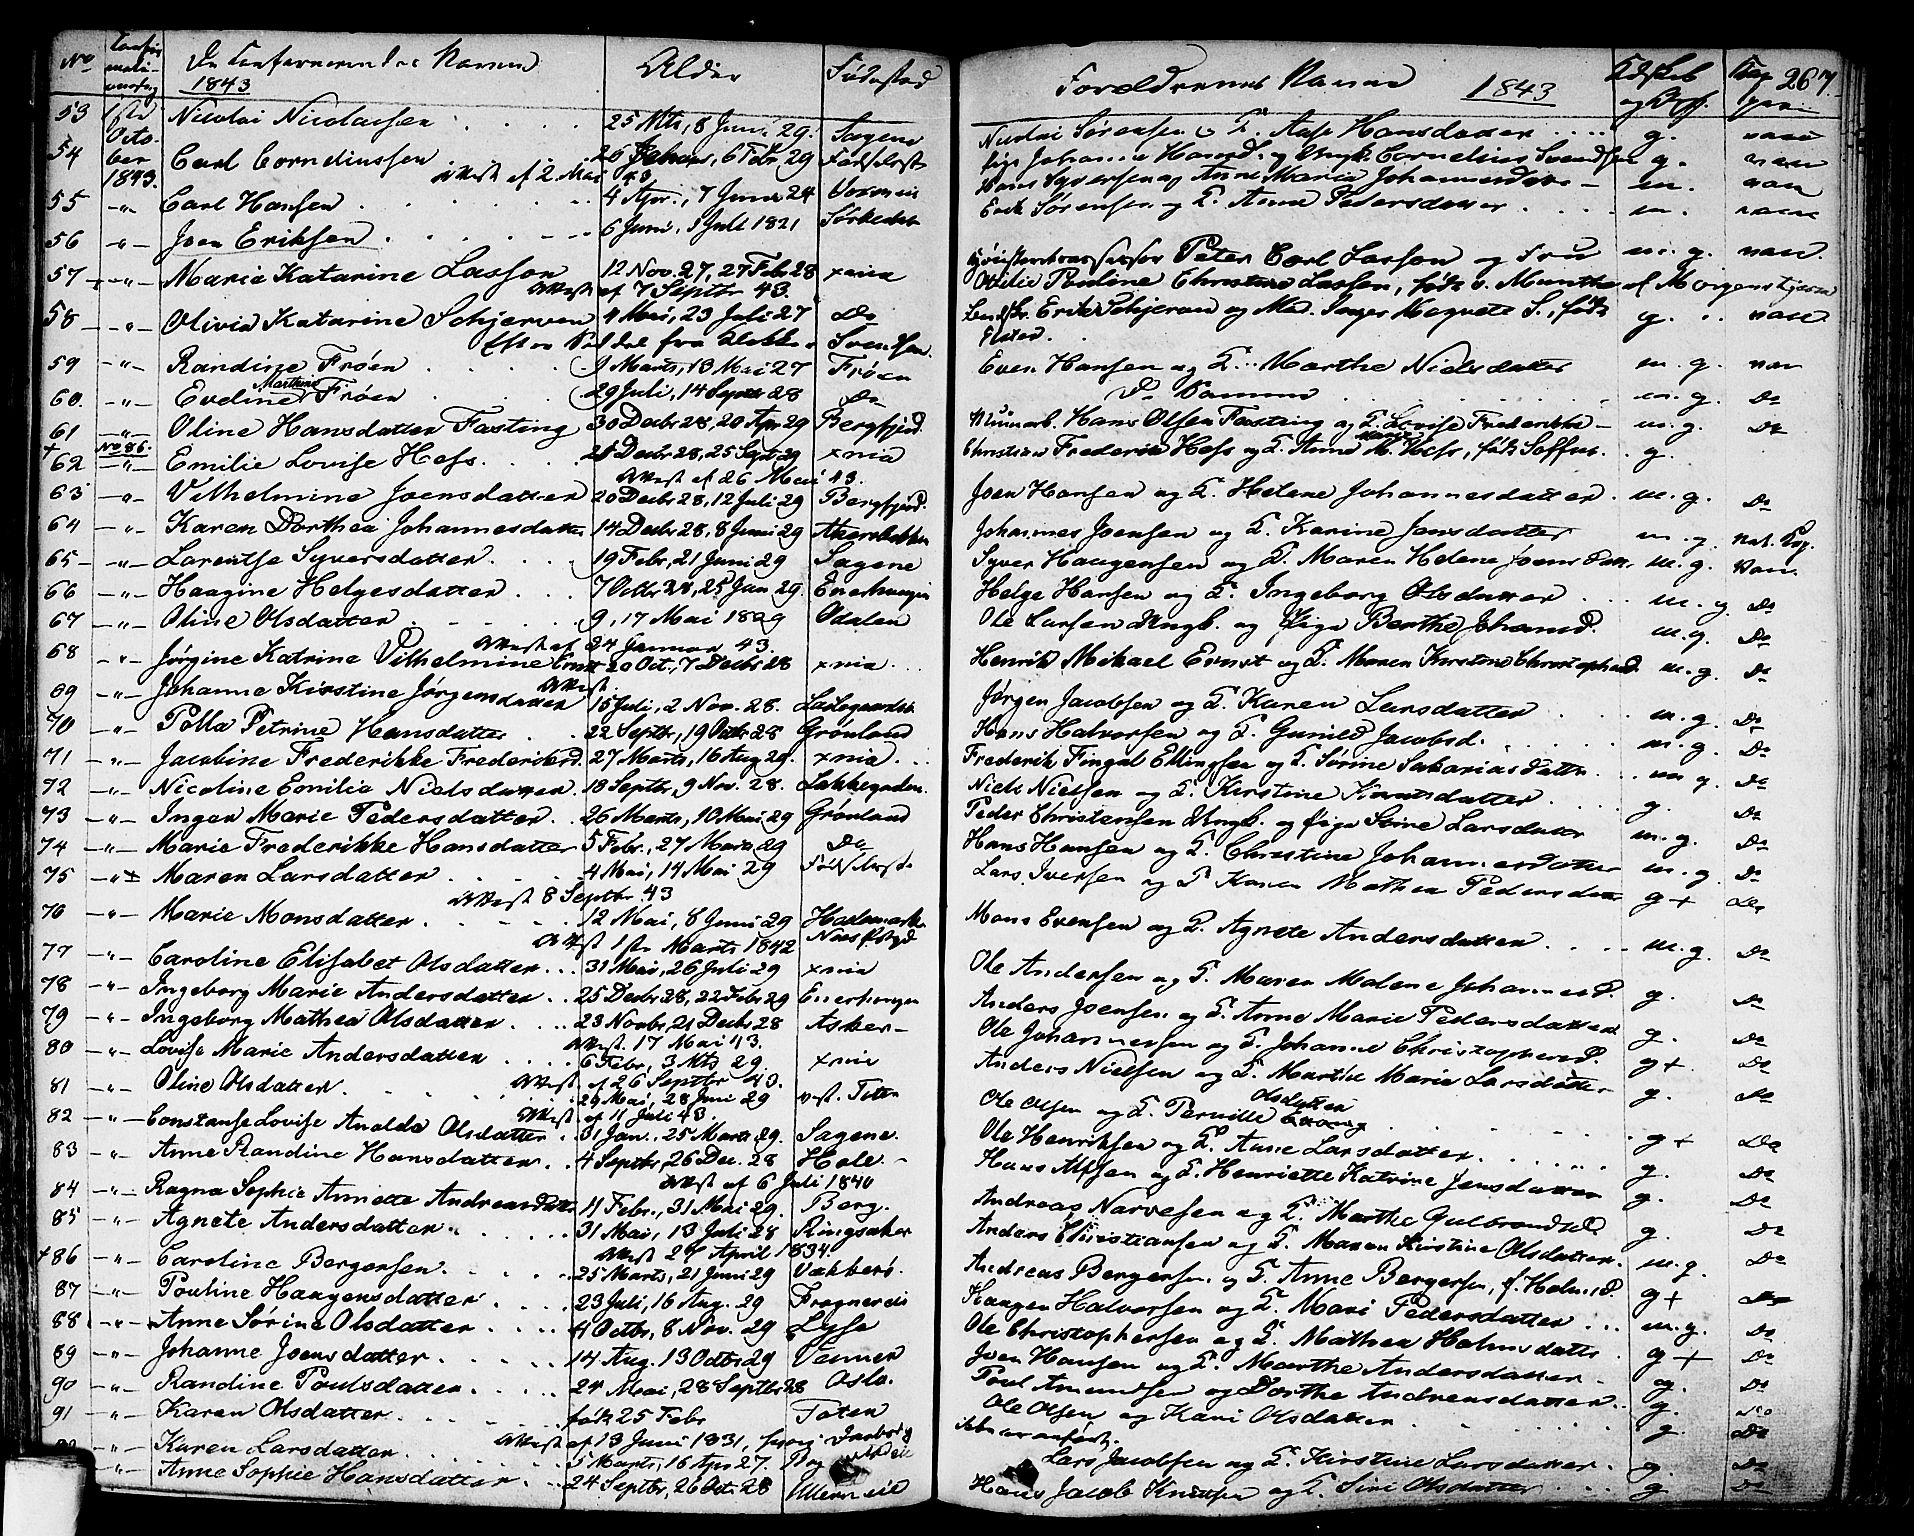 No Confirmationsdag De Confirmerendes Navne 1843 Alder Fødested
53 1ste October 1843. Nicolai Nicolaisen 25 Mts, 8 Juni 29. Sagene
54 Carl Corneliussen 6 Febr. 29 Fødselsst.
Attest af 2 Mai 43.
55 -"- Carl Hansen 4 Apr., 7 Juni 24
56 -"- Joen Eriksen 6 Juni, 1 Juli 1821 Sørkedal
57 -"- Marie Katarine Lasson 12 Nov. 27, 27 Febr 28 xnia
Attest af 7 Septbr 43.
58 -"- Olivia Katarine Schjerven 4 Mai, 23 Juli 27 Do
59 -"- Randine Frøen 9 Marts, 13 Mai 27 Frøen
60. -"- Evdine Marthine Frøen 29 Juli, 14 Septbr 28 Do
61 -"- Oline Hansdatter Fasting 30 Decbr 28, 20 Apr 29 Bergfjerd.
+ 62 No 86. -"- Emilie Lovise Hess. Decbr 28, 25 Sept 29 xnia
Attest af 26 Mai 43.
63 -"- Vilhelmine Joensdatter 20 Decbr 28, 12 Juli 29 Bergfjerd.
64 -"- Karen Dorthea Johannesdatter 14 Decbr 28, 8 Juni 29 Akersbakken
65 -"- Larentse Syversdatter 19 Febr, 21 Juni 29 Sagene
66 -"- Haagine Helgesdatter 7 Octbr 28, 25 Jan 29. Enerhaugen
67 -"- Oline Olsdatter 9, 17 Mai 1829 Odalen
Attest af 24 Januar 43.
68 -"- Jørgine Katrine Vilhelmine Ernst 20 Oct., 7 Decbr 28 xnia
Attest.
69 -"- Johanne Kirstine Jørgensdatter 15 Juli, 2 Nov. 28.
70 -"- Polla Petrine Hansdatter 22 Septbr, 19 Octbr 28 Grønland
71 -"- Jacobine Frederikke Frederiksd. 27 Marts, 16 Aug 29. xnia
72 -"- Nicoline Emilie Nielsdatter 18 Septbr, 9 Nov. 28. Lakkegaden.
73 -"- Inger Marie Pedersdatter 26 Marts, 10 Mai 29 Grønland
74 -"- Marie Frederikke Hansdatter 5 Febr., 27 Marts 29 Do
75 -"- Maren Larsdatter 4 Mai, 14 Mai 29 Fødselsst.
Attest 8 Septbr. 43
76 -"- Marie Monsdatter 12 Mai, 8 Juni 29 Hedemarken
Attest 1ste Marts 1842 Næs Præstgjd
77 -"- Caroline Elisabet Olsdatter 31 Mai, 26 Juli 29 xnia
78 -"- Ingeborg Marie Andersdatter 25 Decbr 28, 22 Febr 29 Enerhaugen
79 -"- Ingeborg Mathea Olsdatter 23 Novbr, 21 Decbr 28 Asker
Attest. 17 Mai 43.
80 -"- Lovise Marie Andersdatter 6 Febr, 3 Mts 29 xnia
Attest af 26 Septbr 43.
81 -"- Oline Olsdatter 29 Mai, 28 Juni 29 vest. Toten
Attest af 11 Juli 43.
82 -"- Constanse Lovise Analda Olsdatter 31 Jan. 25 Marts 29. Sagene
83 -"- Anne Randine Hansdatter 4 Septbr, 26 Dec. 28 Hole
Attest af 6 Juli 1840
84 -"- Ragna Sophie Annette Andreasdatter 11 Febr., 31 Mai 29. Berg.
85 -"- Agnete Andersdatter 31 Mai, 13 Juli 28 Ringsaker
Attest 29 April 1834.
+86 -"- Caroline Bergersen 25 Marts, 21 Juni 29 Vækkerø.
87 -"- Pouline Haagensdatter 23 Juli, 16 Aug. 29 Frogner eie
88 -"- Anne Sørine Olsdatter 4 Octbr, 8 Nov. 29 Lysse
89 -"- Johanne Joensdatter 14 Aug. 13 Octbr 29 Vennen
90 -"- Randine Poulsdatter 24 Mai, 28 Septbr 28 Oslo.
91 -"- Karen Olsdatter født 25 Febr Toten
Attest af 13 Juni 1831,
-"- Karen Larsdatter 5 Marts, 16 Apr 27.
-"- Anne Sophie Hansdatter 24 Septbr, 26 Octbr 28 Ullern eie
Forældrenes Navne 1843 267.
Nicolai Sørensen og H. Aase Hansdatter g. nat.
Pige Johanne Hansd. og Ungk. Cornelius Svendsen g. nat.
Hans Syversen og Anne Marie Johannesdatter m. nat.
Erik Sørensen og H. Anne Pedersdatter m. nat.
Peter Carl Lasson og Fru m. g. nat.
Otilie Pouline Christine Lasson, født v. Munthe af Morgenstjerne
Erik Schjerven og Mad. Inger Margrete S., født g. nat.
Elsted.
Even Hansen og H. Marthe Nielsdatter m. g. nat.
De Samme m. g. Do
Hans Olsen Fasting og H. Lovise Frederikke m. g. Do
Christian Frederik Hess og H. Anne Marie Hess, født Soffus. g.
Joen Hansen og H. Helene Johannesdatter. m. g. Do
Johannes Joensen og H. Karine Jensdatter m. g. nat. Kop.
Syver Haugensen og H. Maren Helene Joensdatt. m. g. nat.
Helge Hansen og H. Ingeborg Olsdatter m. g. Do
Ole Larsen Ungk. og Pige Berthe Johansd. m. g. Do
Henrik Mikael Ernst og H. Maren Kirstine Christophersd. m. g. Do
Jørgen Jacobsen og H. Karen Larsdatter m. g. Do
Hans Halvorsen og H. Gunild Jacobsd. m. g. Do
Frederik Fingal Ellingsen og H. Sørine Sakariasdatter m g. Do
Niels Nielsen og H. Kirstine Knutsdatter g. Do
Peder Christensen Ungk. og Pige Sørine Larsdatter m. g. Do
Hans Hansen og H. Christine Johannesdatter m. g. Do
Lars Iversen og H Karen Mathea Pedersdatter g + Do
Mons Evensen og H. Agnete Andersdatter m. g. Do
Ole Andersen og H. Maren Malene Johannesd. g. Do
Anders Joensen og H. Anne Marie Pedersdatter g. Do
Ole Johannessen og H. Johanne Christophersd. g+ Do
Anders Nielsen og H. Marthe Marie Larsdatter g. Do
Ole Olsen og H. Pernille Olsdatter g+ Do
Ole Henriksen og H. Anne Larsdatter g. Do
Hans Alfsen og H. Henriette Katrine Jensdatter g. Do
Andreas Narvesen og H. Marthe Gulbrandsd. g. Do
Anders Christiansen og H. Maren Kirstine Olsdatter. m. g. Do
Andreas Bergersen og H. Anne Bergersen, f. Holmsd. g + Do
Haagen Halvorsen og H. Mari Pedersdatter m. g. Do
Ole Christophersen og H. Mathea Holmsdatter g + Do
Joen Hansen og H. Marthe Andersdatter g. Do
Poul Amundsen og Dorthe Andreasdatter g. Do
Ole Olsen og Kari Olsdatter g. Do
ikke anført.
Lars Jacobsen og H. Kirstine Larsdatter g. Do
Hans Jacob Knutsen og H. Siri Olsdatter g Do